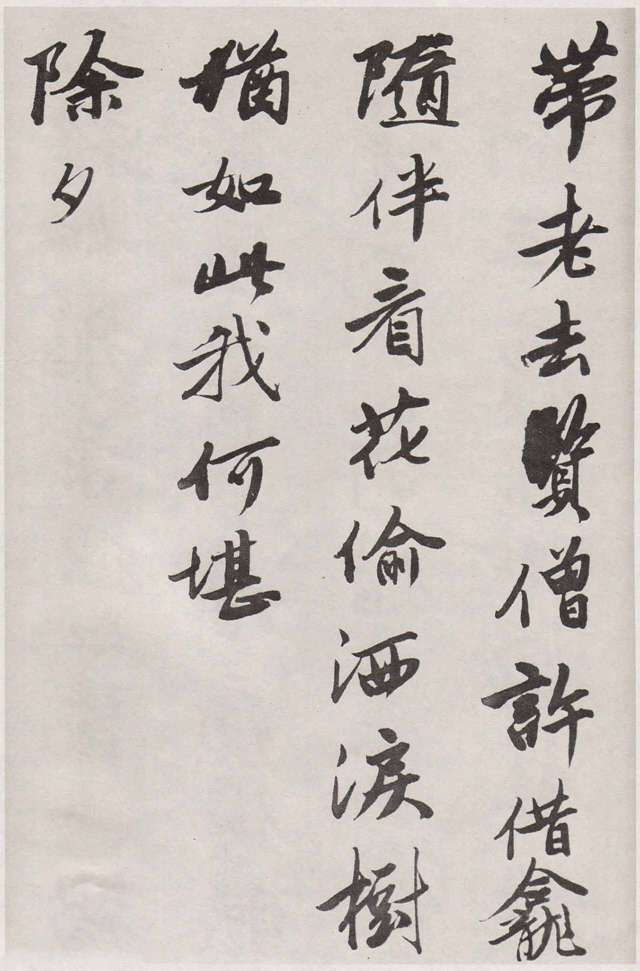 带老去賢僧許借龕
隨伴看花偷洒淚樹
猶如此我何堪
除夕